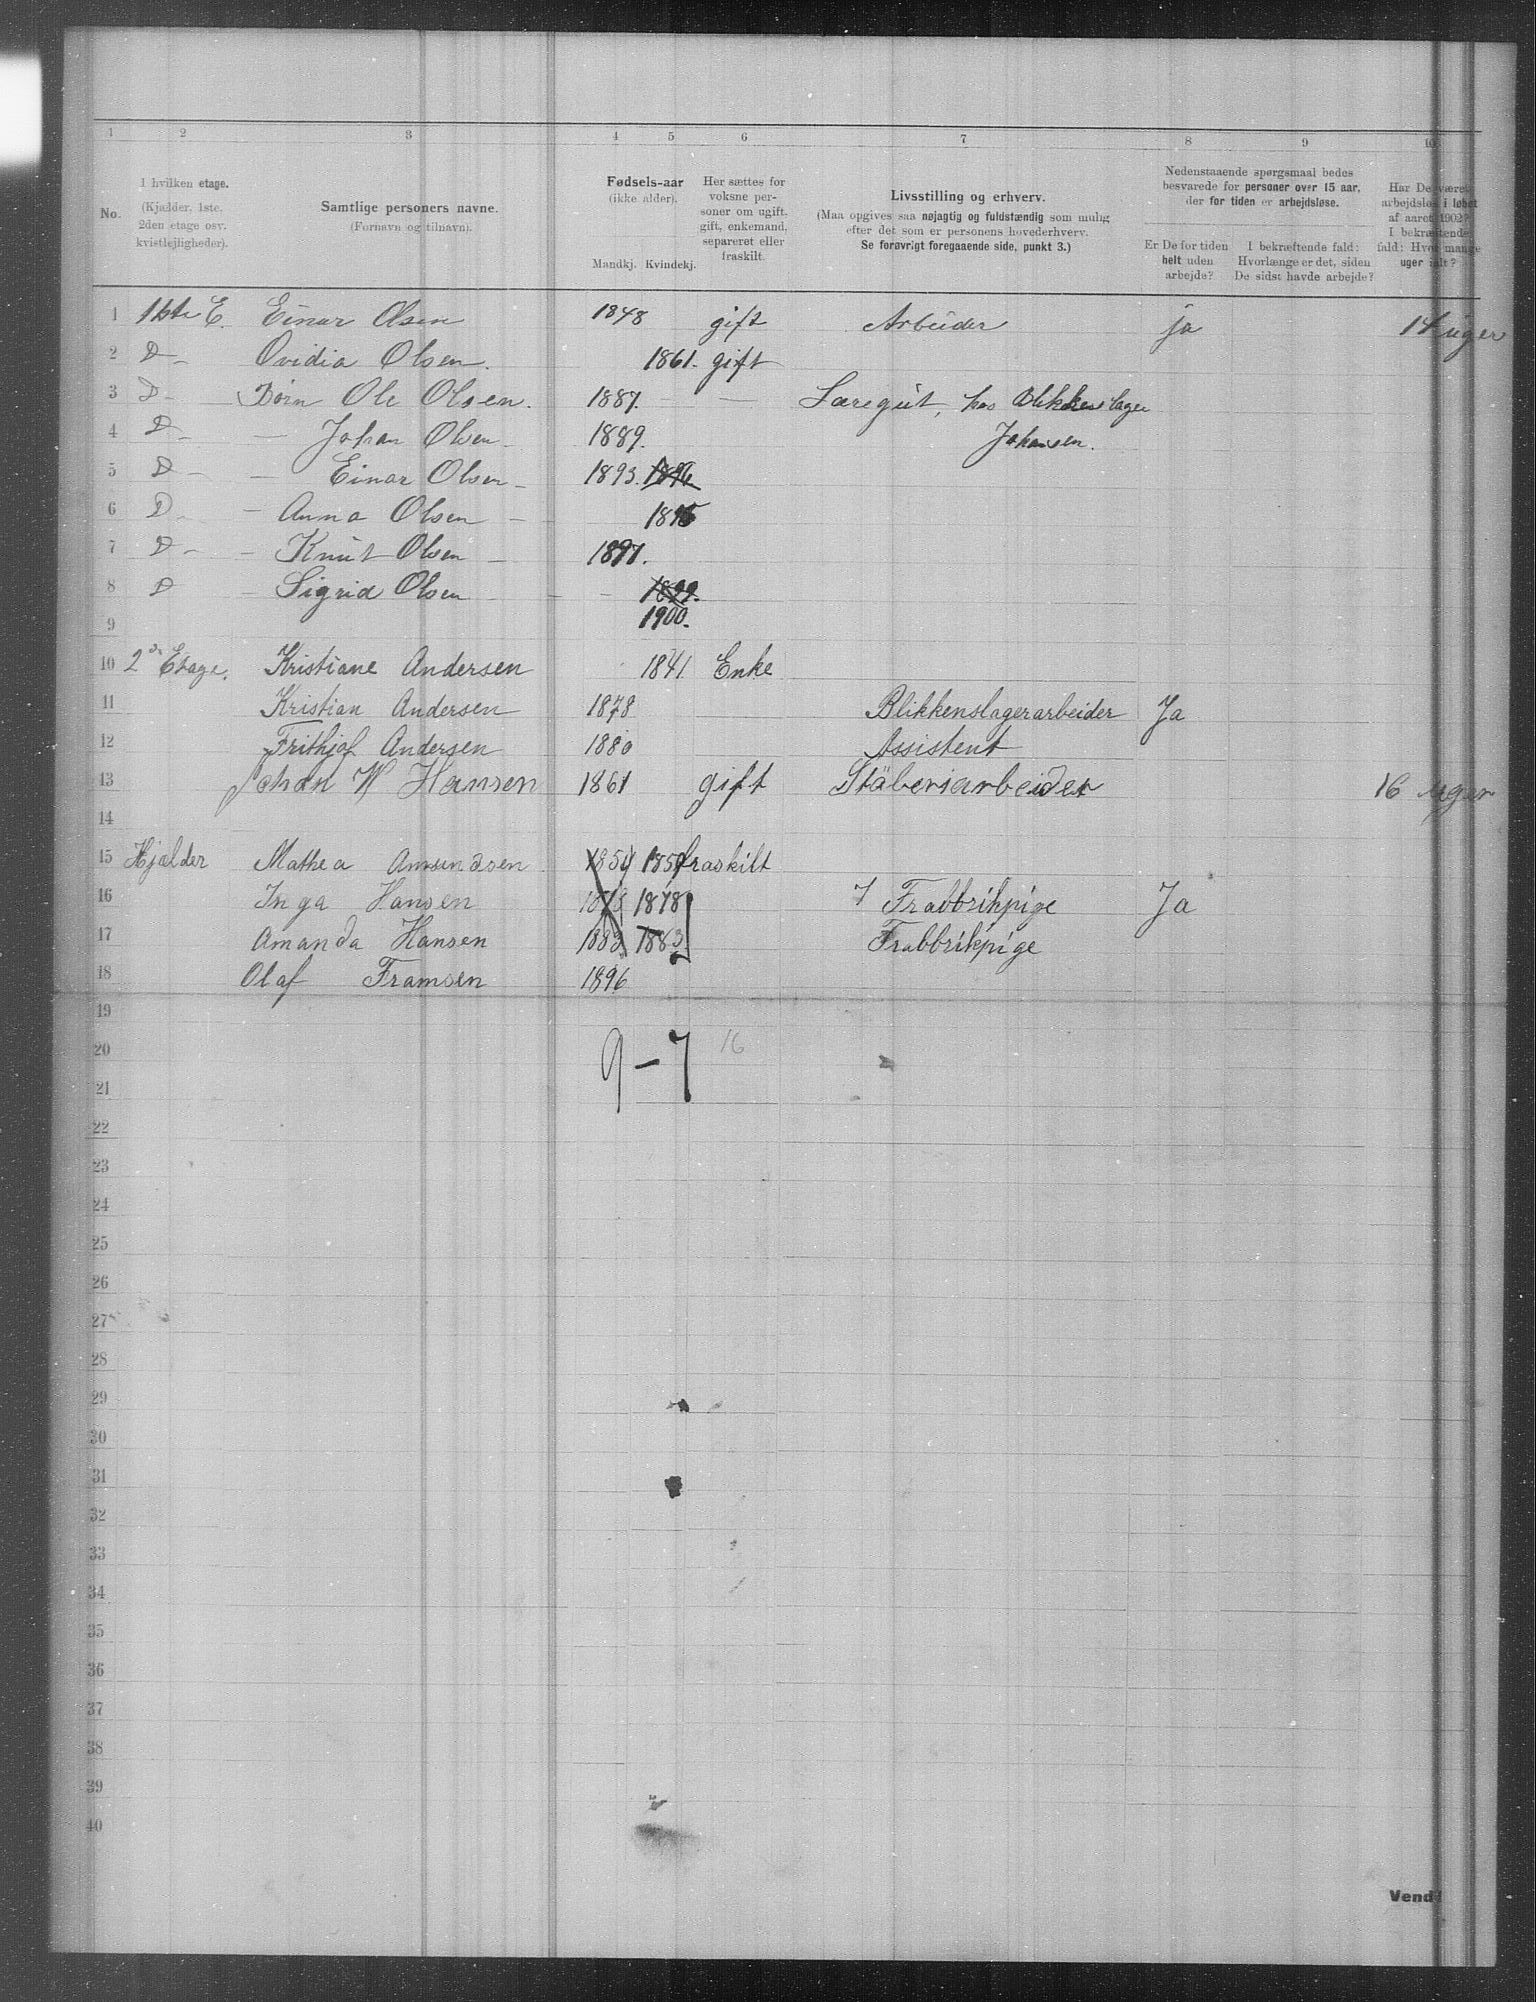 1 2 3 4 5 6 7 8 9 10
No.
I hvilken etage.
(Kjælder, 1ste.
2den etage osv.
kvistlejligheder).
Samtlige personers navne.
(Fornavn og tilnavn).
Fødsels-aar
(ikke alder).
Mandkj. Kvindekj.
Her sættes for
voksne per-
soner om ugift,
gift, enkemand,
separeret eller
fraskilt.
Livsstilling og erhverv.
(Maa opgives saa nøjagtig og fuldstændig som mulig
efter det som er personens hovederhverv.
Se forøvrigt foregaaende side, punkt 3.)
Nedenstaaende spørgsmaal bedes
besvarede for personer over 15 aar,
der for tiden er arbejdsløse.
Er De for tiden
helt uden
arbejde?
I bekræftende fald:
Hvorlænge er det, siden
De sidst havde arbejde?
Har De været
arbejdsløs i løbet
af aaret 1902?
I bekræftende
fald: Hvor mange
uger ialt?
1 1ste E. Einar Olsen 1848 gift Arbeider ja 14 uger
2 D- Ovidia Olsen. 1861. gift
3 D- Børn Ole Olsen. 1887. - - Læregut, hos Blikkenslager
4 D- - Johan Olsen 1889. Johansen.
5 D- - Einar Olsen - 1893. 1896
6 D- - Anna Olsen - 1895
7 D- - Knut Olsen - 1897.
8 D - Sigrid Olsen - - - 1899.
9 1900.
10 2den Etage. Kristiane Andersen 1841 Enke
11 Kristian Andersen 1878 Blikkenslagerarbeider Ja
12 Frithjof Andersen 1880 Assistent
13 Johan W Hansen 1861 gift Stäberiarbeider 16 uger
14
15 Kjælder Mathea Amundsen 1854 1854 fraskilt
16 Inga Hansen 1878 1878 Frabbrikpige Ja
17 Amanda Hansen 1883 1883 Frabbrikpige
18 Olaf Framsen 1896
19
20 9-7 16
21
22
23
24
25
26
27
28
29
30
31
32
33
34
35
36
37
38
39
40
Vend!